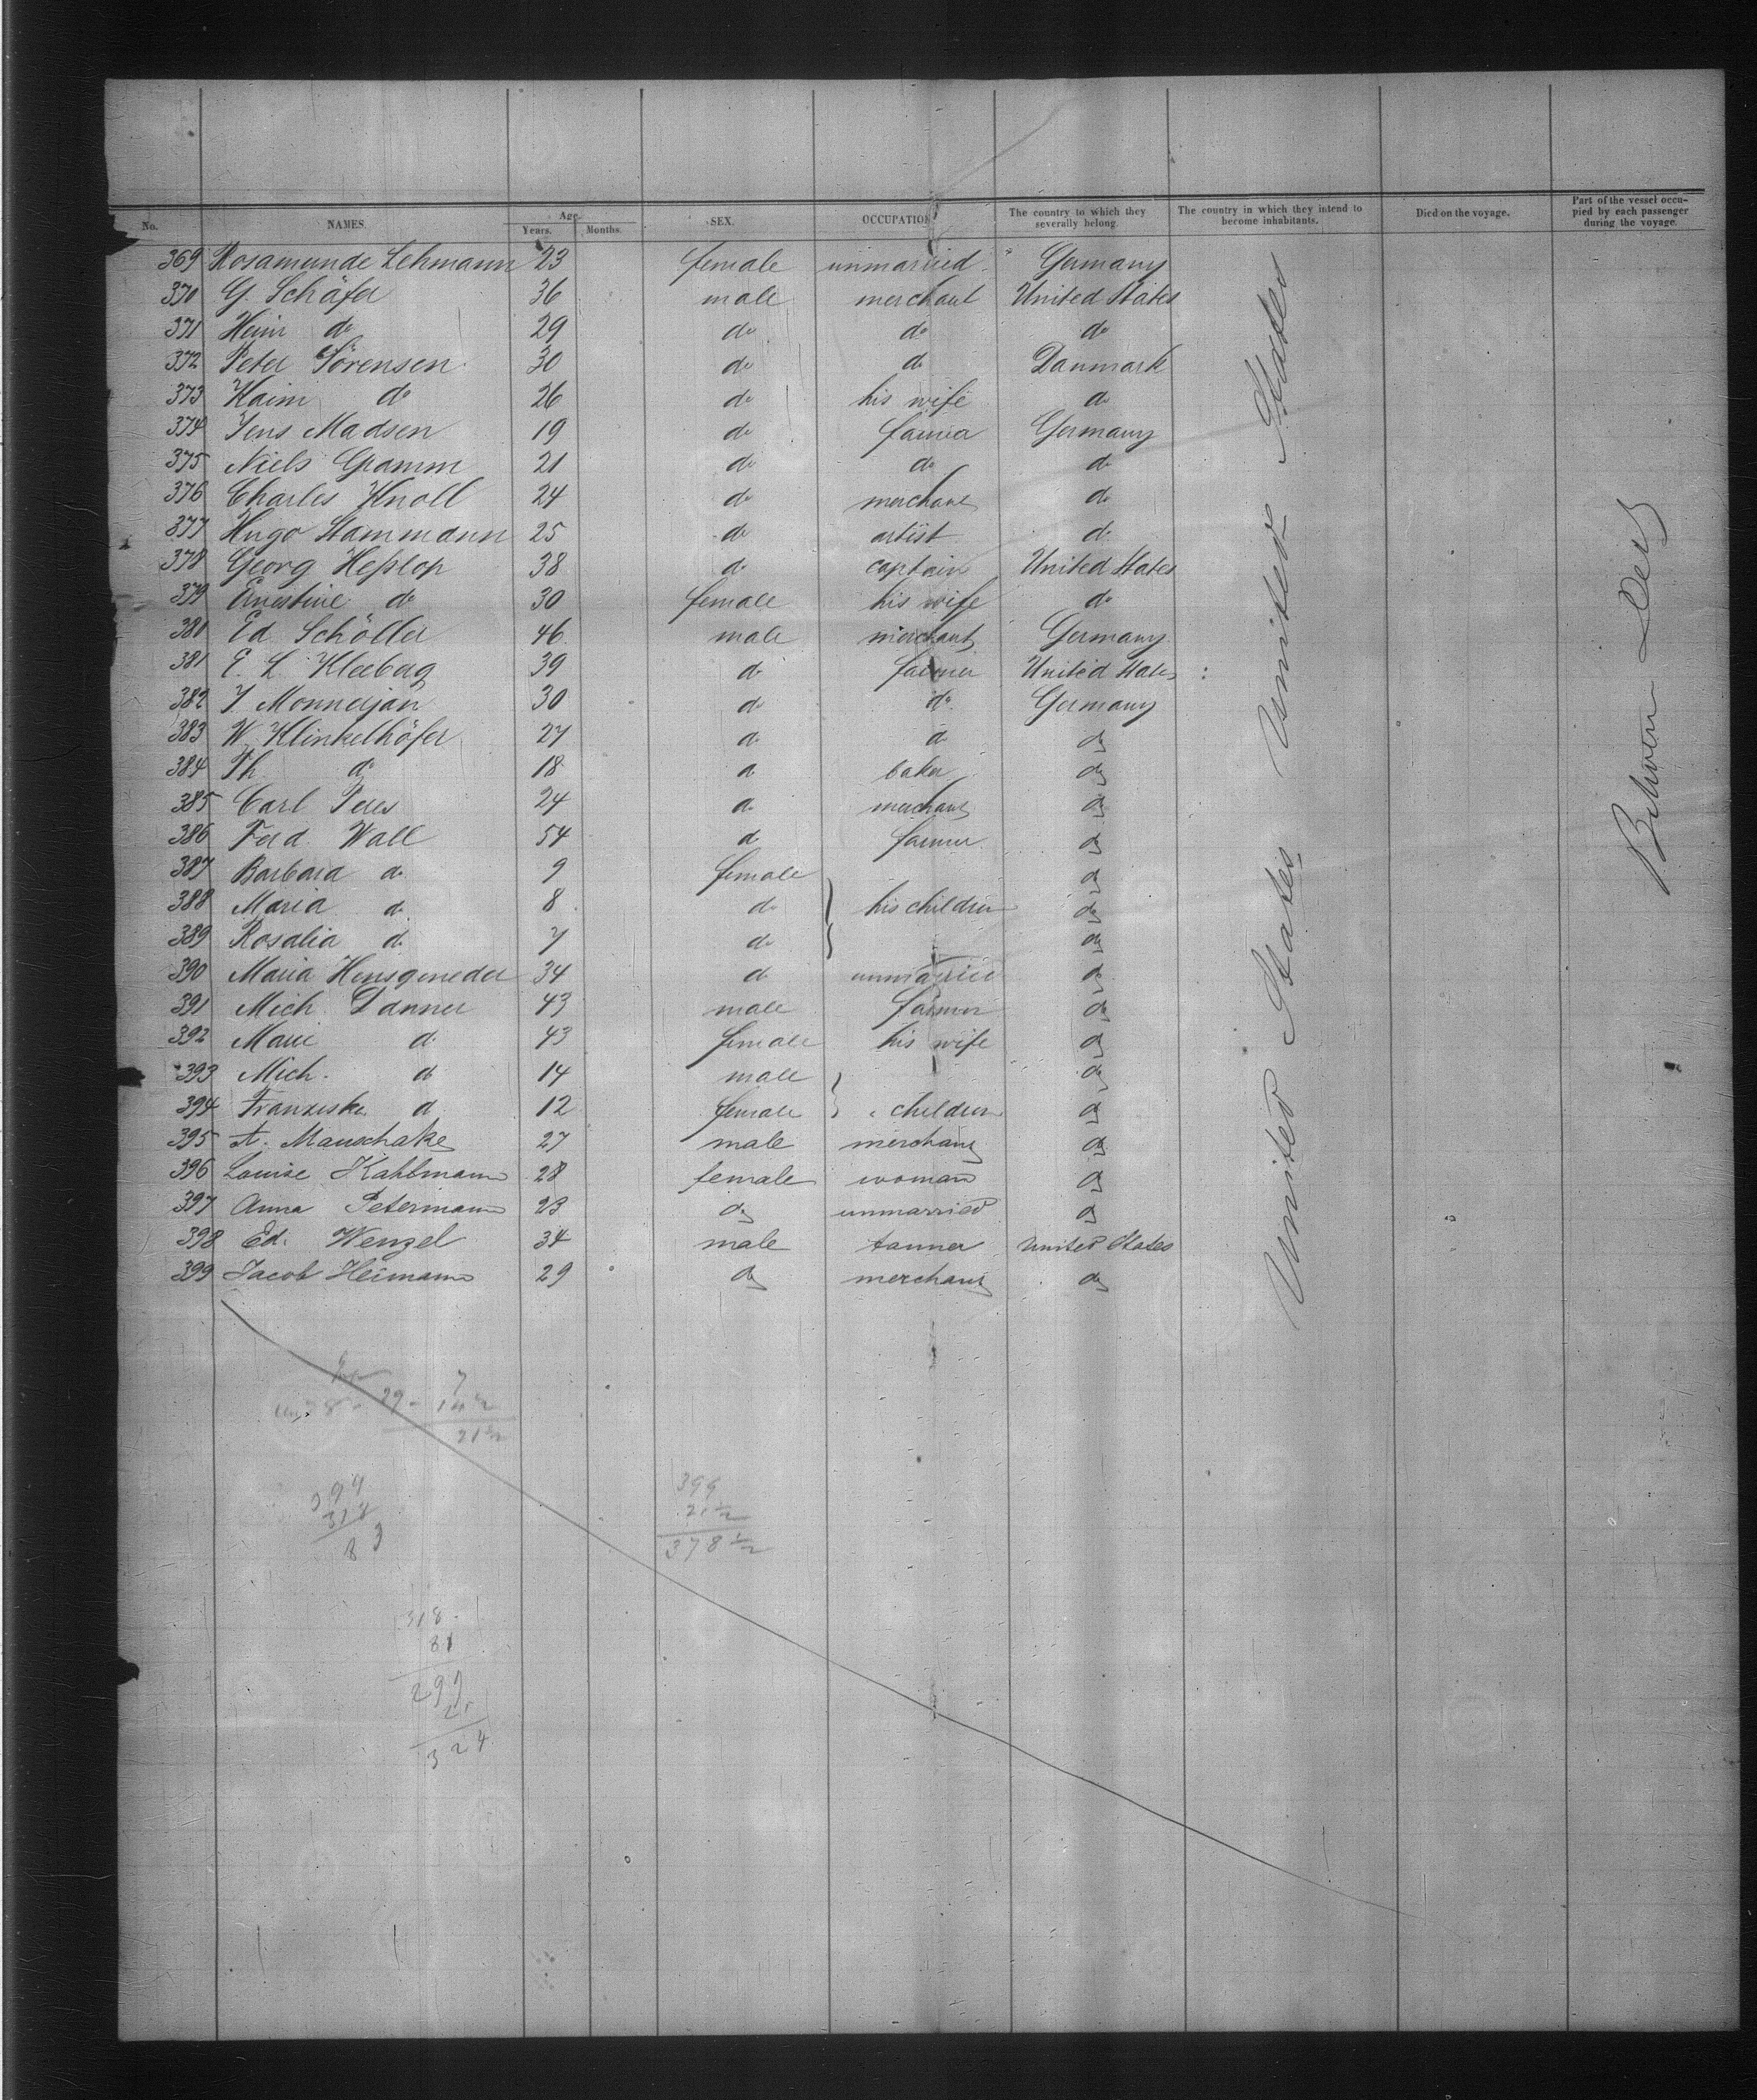 No. NAMES. Age. Years. Months. SEX. OCCUPATION The country to which they severally belong. The country in which they intend to become inhabitants. Died on the voyage. Part of the vessel occupied by each passenger during the voyage.
369 Rosamunde Lehmann 23 female unmarried Germany
370 G. Schäfer 36 male merchant United States
371 Heinr do 29 do do do
372 Peter Sörensen 30 do do Danmark
373 Haim do 26 do his wife do
374 Jens Madsen 19 do farmer Germany
375 Niels Gramm 21 do do do
376 Charles Knoll 24 do merchant do
377 Hugo Stammann 25 do artist do
378 Georg Heßlop 38 do captain United States
379 Ernestine do 30 female his wife do
380 Ed Schöller 46 male merchant Germany
381 E. L. Kleeberg 39 do farmer United States
382 J. Monnerjan 30 do do Germany
383 W. Klinkelhöfer 27 do do do
384 Th do 18 do baker do
385 Carl 24 do merchant do
386 Ferd. Wall 54 do farmer do
387 Barbara do 9 female do
388 Maria do 8 do his children do
389 Rosalia do 7 do do
390 Maria Hensgeneder 34 do unmarried do
391 Mich. Danner 43 male farmer do
392 Marie do 43 female his wife do
393 Mich. do 14 male do
394 Franziska do 12 female children do
395 A. Mauschake 27 male merchant do
396 Louise Kahlmann 28 female woman do
397 Anna Petermann 23 do unmarried do
398 Ed. Wenzel 34 male tanner United States
399 Jacob Heimann 29 do merchant do
United States United States
Between Deck
7
29 - 14½
21½
399
21½
378½
318
81
299
25
324